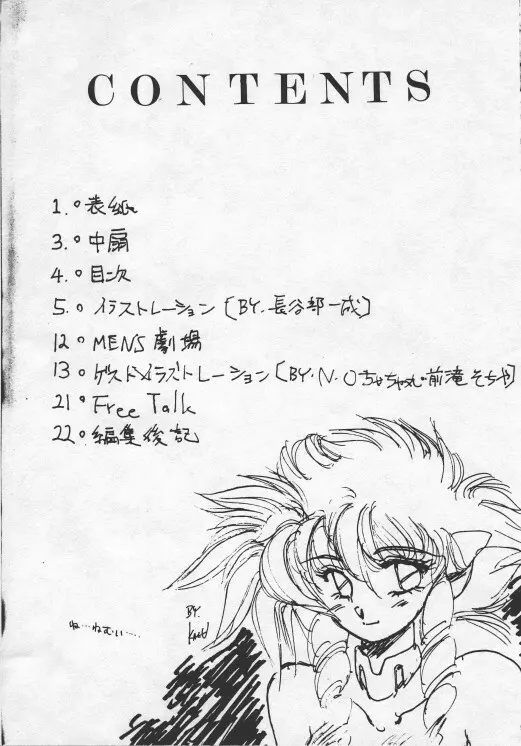 CONTENTS
1.°表紙
3.°中扉
4.°目次
5.°イラストレーション〔BY.長谷部一成〕
12°MENS劇場
13°ゲストイラストレーション〔BY.N.Oちゃちゃ丸 前滝そちや〕
21°Free Talk
22°編集後記
BY
ね…ねむい……